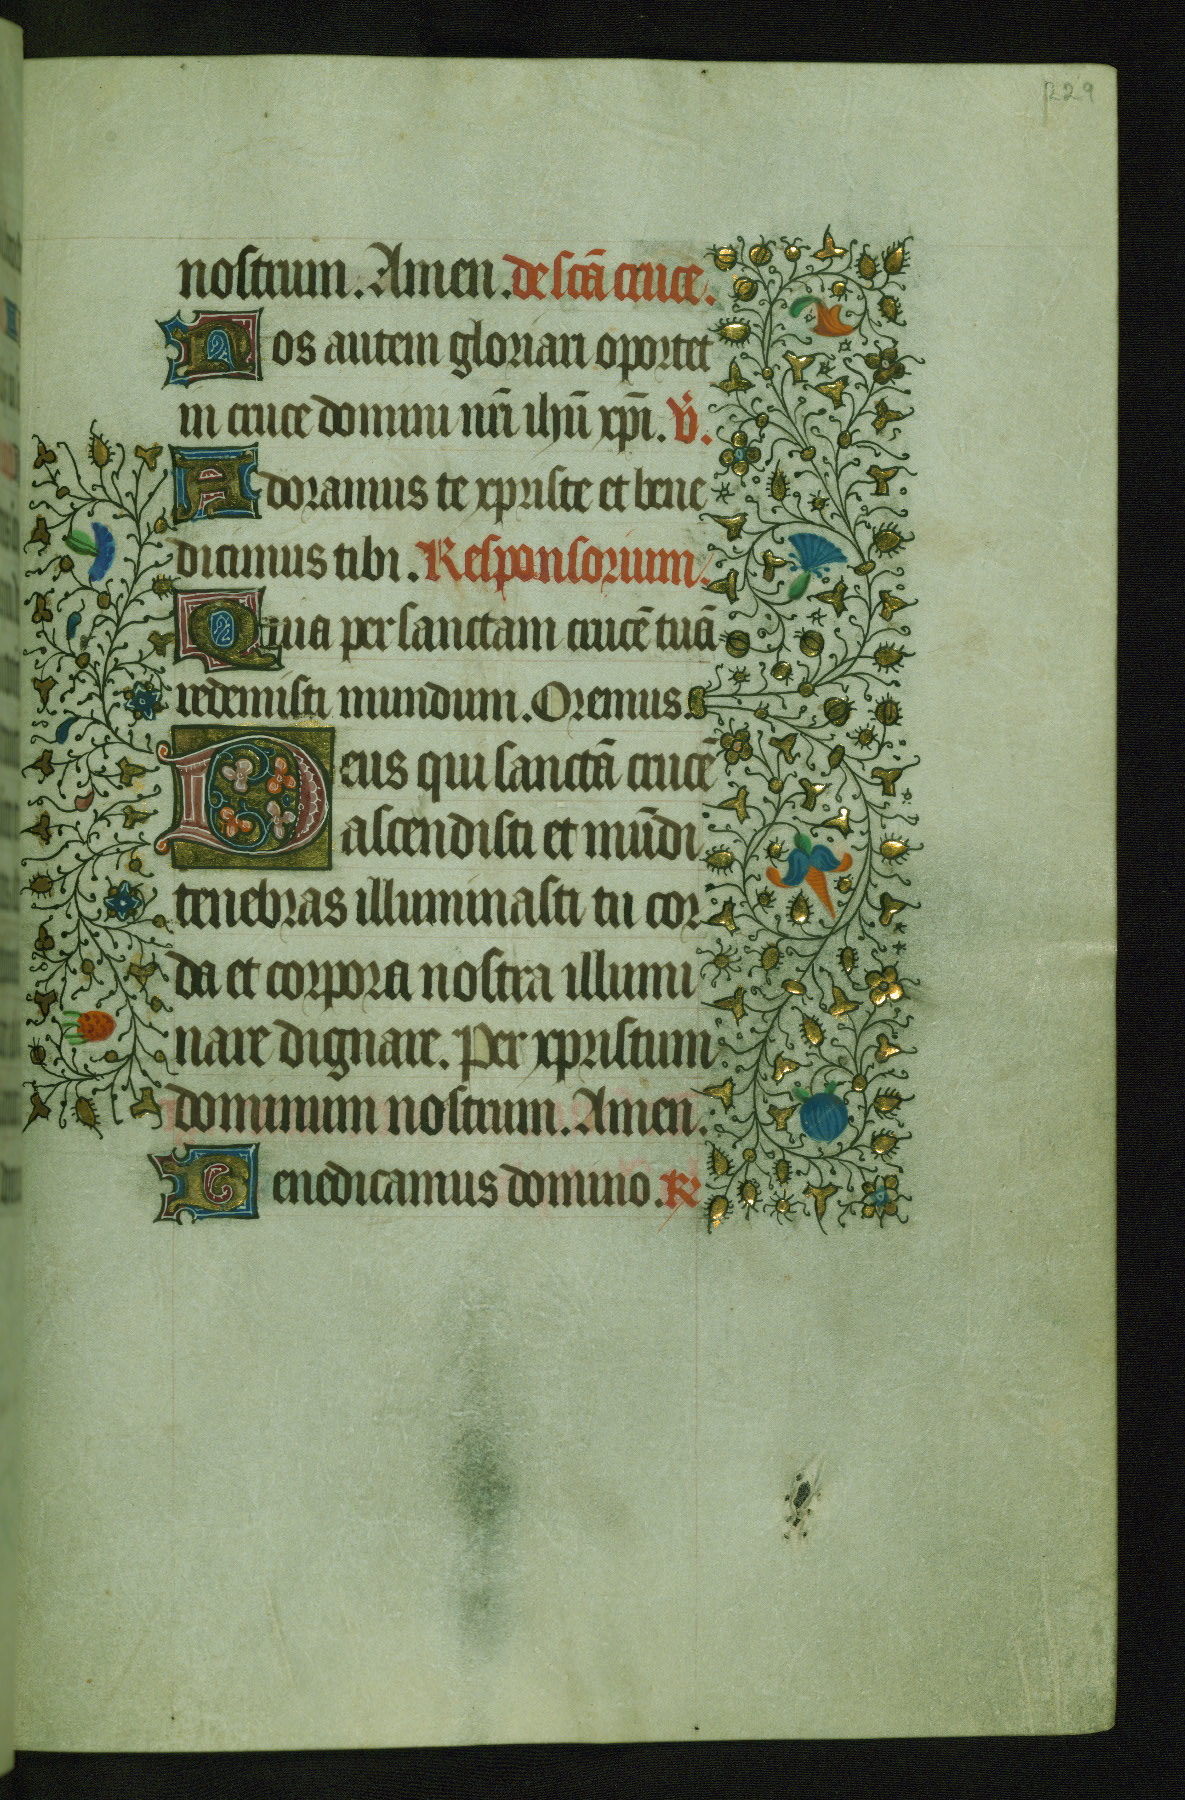 229
nostrum. Amen. de scā cruce.
Nos autem gloriari oportet
in cruce domini nr̄i ih̄u xp̄i. V̄.
Adoramus te xpriste et bene
dicimus tibi. Responsorium.
Quia per sanctam crucē tuā
redemisti mundum. Oremus.
Deus qui sanctā crucē
ascendisti et mūdi
tenebras illuminasti tu cor
da et corpora nostra illumi
nare dignare. Per xpristum
dominum nostrum. Amen.
Benedicamus domino. R